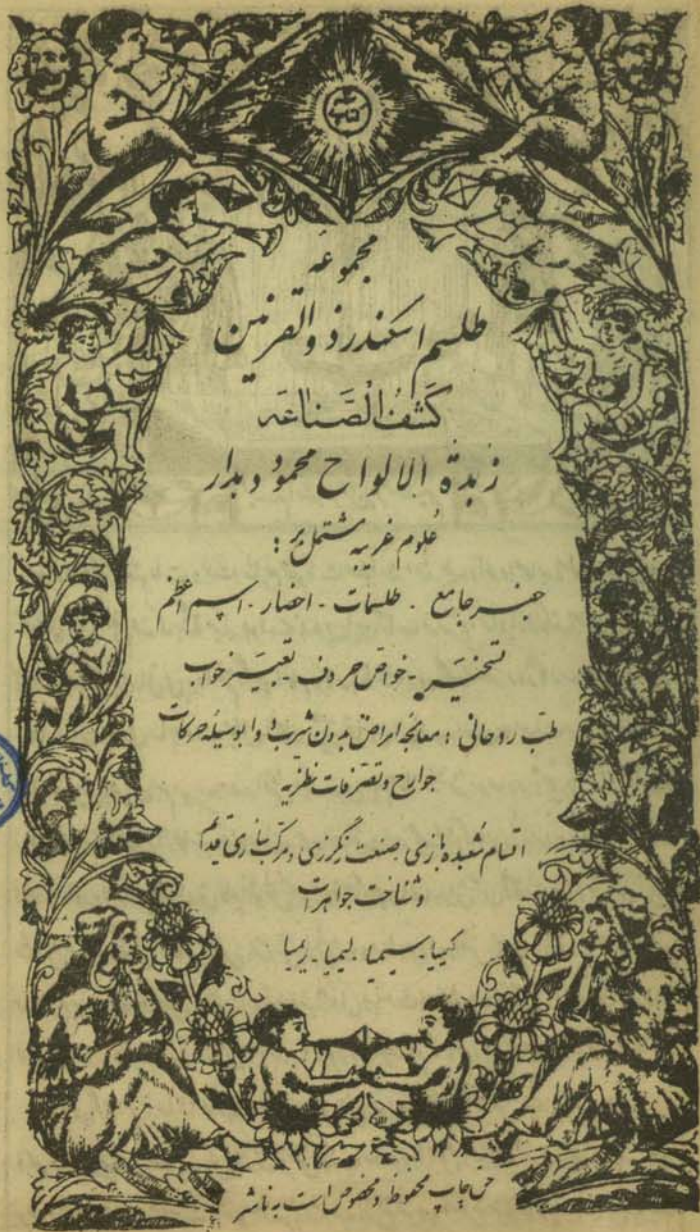 مجموعه
طلسم اسکندر ذوالقرنین
کَشفُ الْصَّناعَه
زبدة الالواح محمود دهدار
عُلوم غریبه مشتمل بر :
جفر جامع - طلسمات - احضار - اسم اعظم
تسخیر - خواص حروف - تعبیر خواب
طب روحانی : معالجه امراض بدون شرب دوا بوسیله حرکات
جوارح و تصرفات نظریه
اقسام شعبده بازی صنعت رنگرزی و مرکب سازی قدیم
و شناخت جواهرات
کیمیا - سیمیا - لیمیا - ریمیا
حق چاپ محفوظ و مخصوص است به ناشر